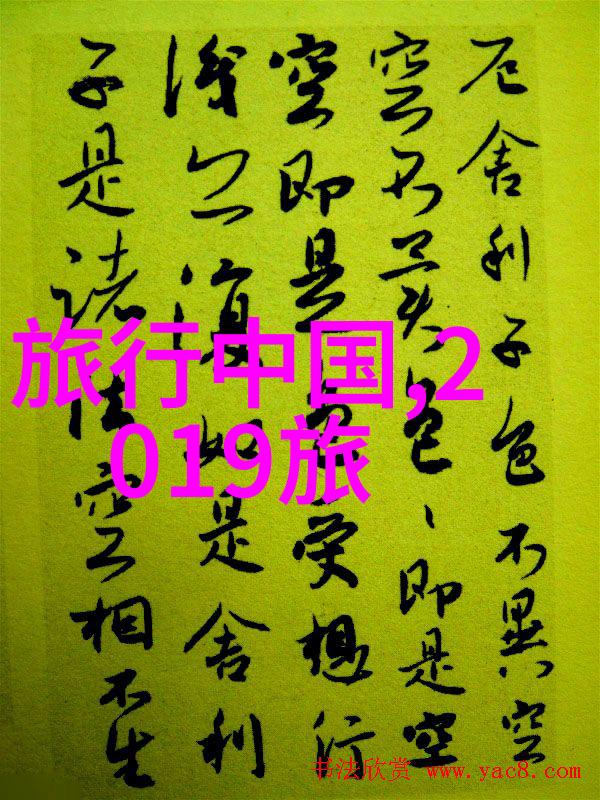 厄舍利子色不異空
空不異色、即是空
空即是色受想行
識亦復如是舍利
子是諸法空相不生
旅行中国,2
019旅
书法欣赏 www.yac8.com